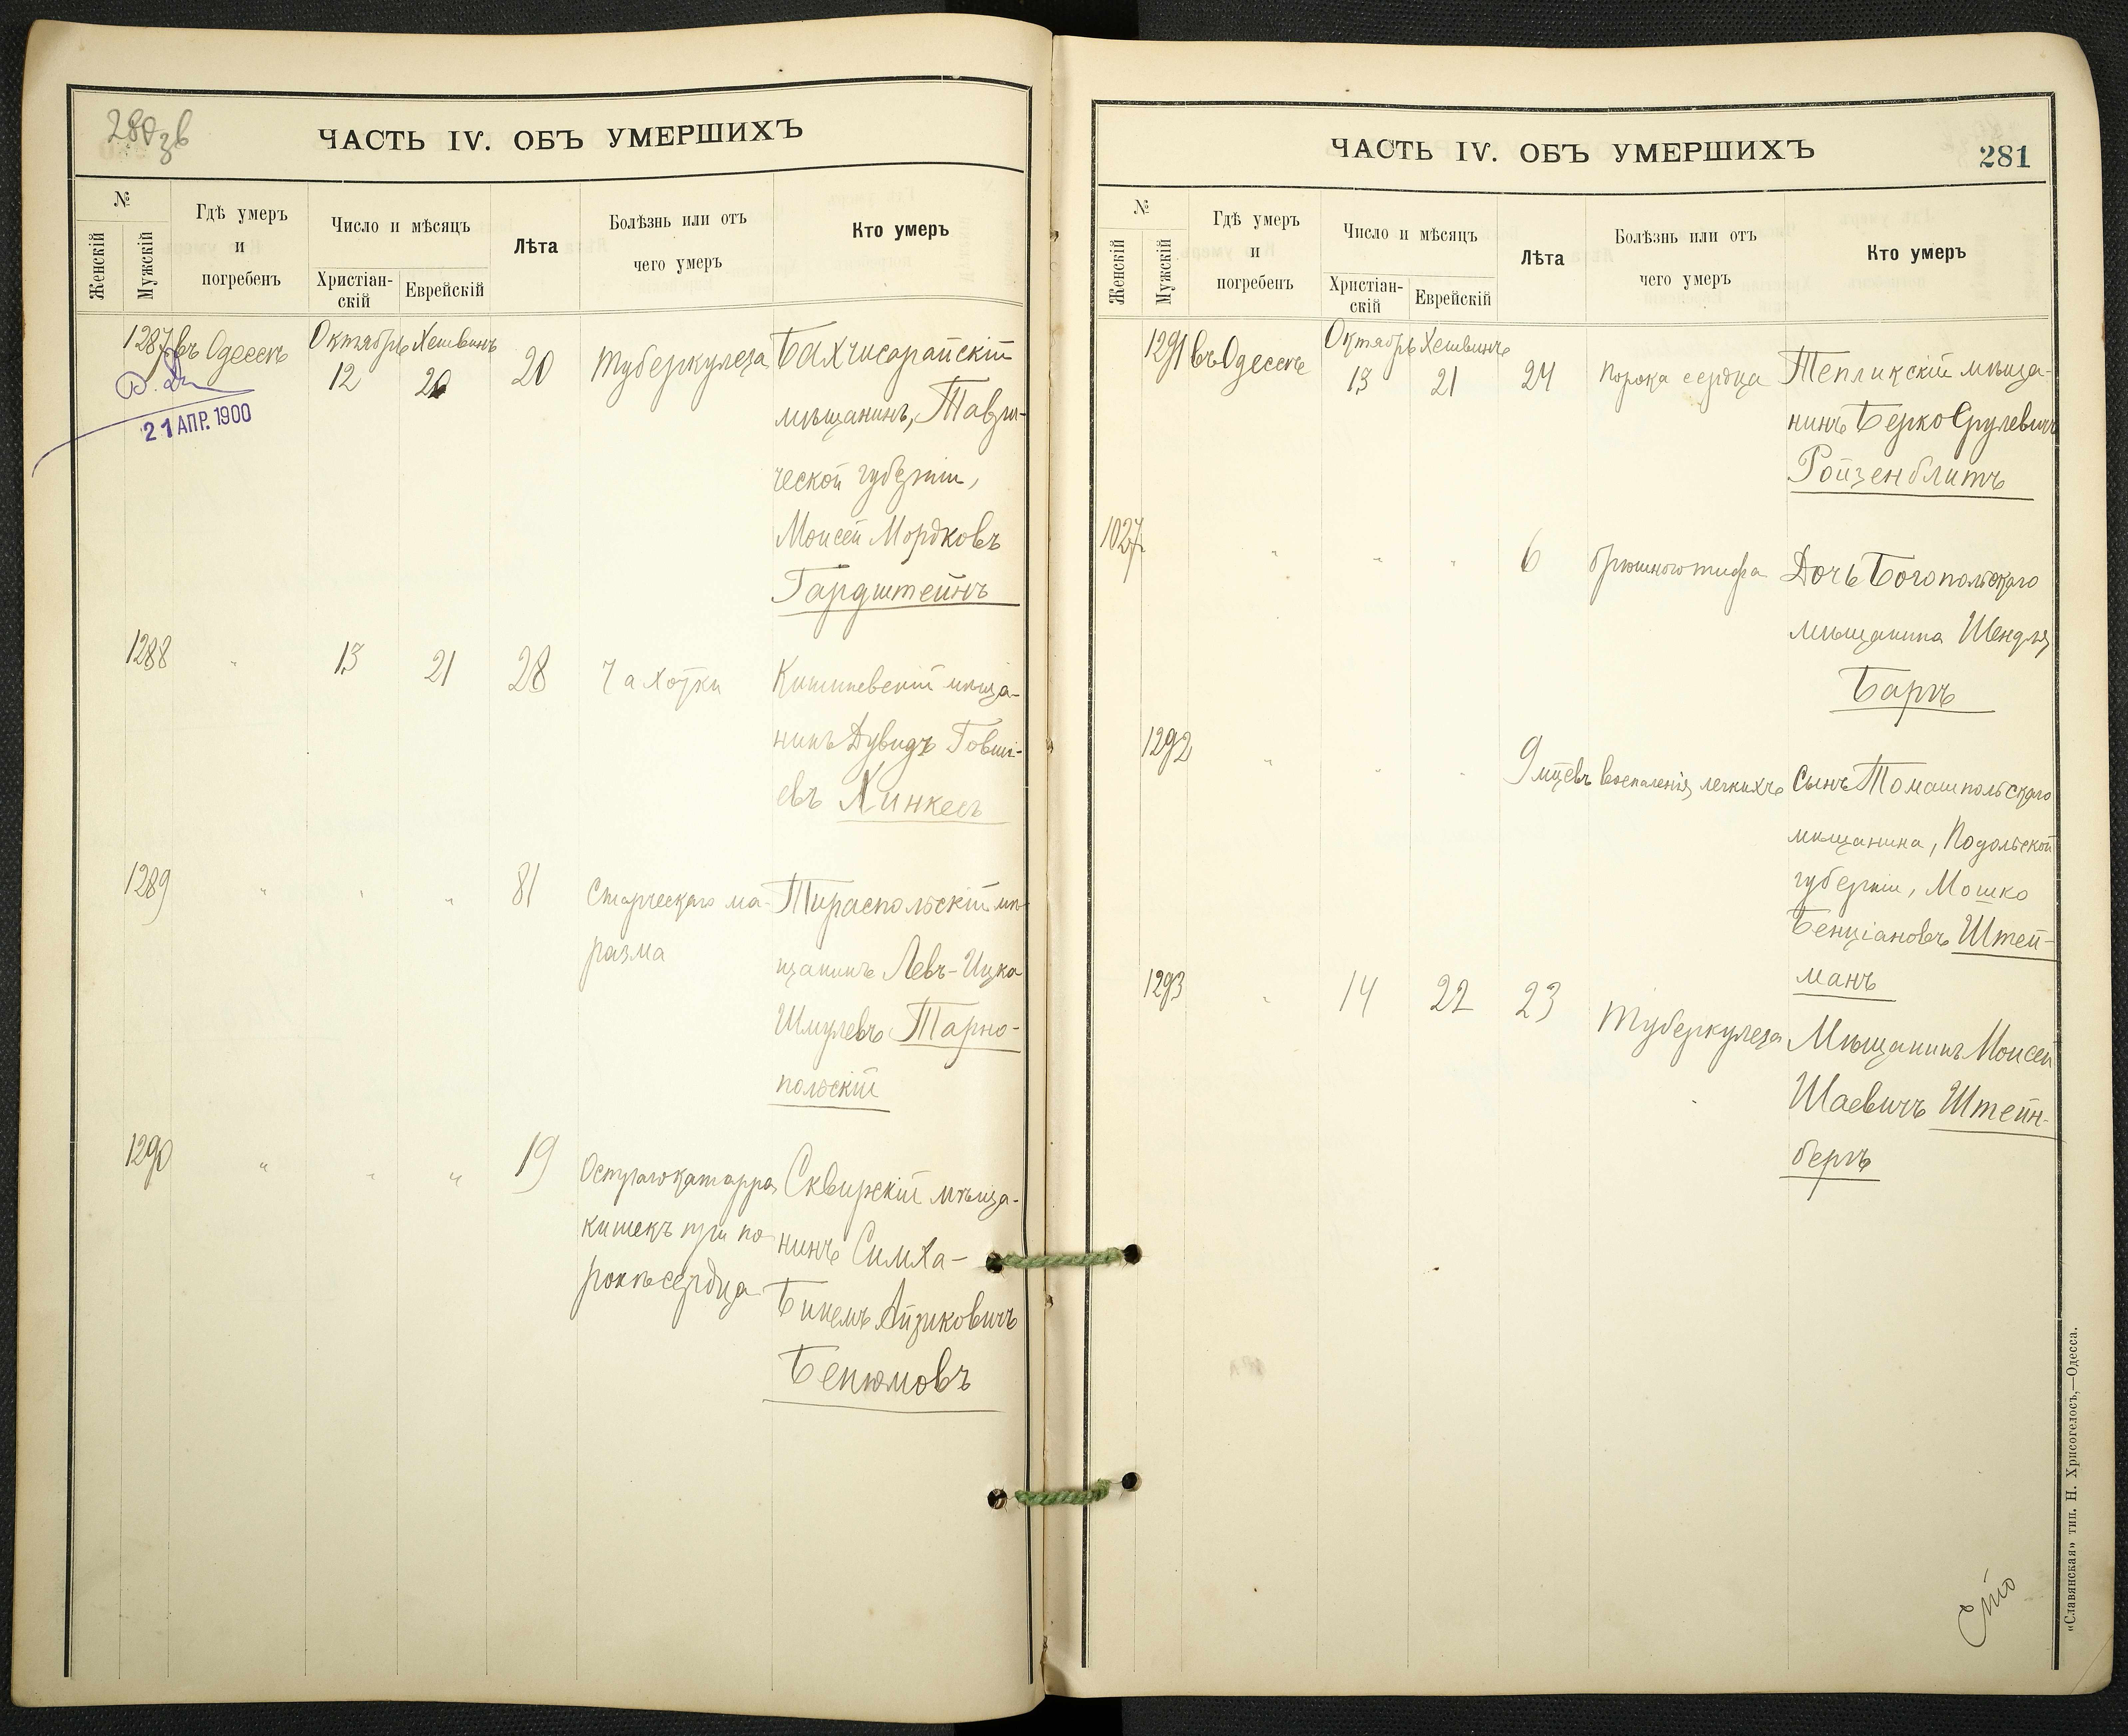 280 зв
ЧАСТЬ IV. ОБЪ УМЕРШИХЪ
№
Женскій
Мужскій
Гдѣ умеръ
и
погребенъ
Число и мѣсяцъ
Христіан-
скій
Еврейскій
Лѣта
Болѣзнь или отъ
чего умеръ
Кто умеръ
1287 въ Одессѣ Октябрь Хешванъ
12 20 20 Туберкулеза Бахчисарайскій
21 АПР. 1900
мѣщанинъ, Таври-
ческой губерніи,
Моисей Мордковъ
Гардштейнъ
1288 " 13 21 28 Чахотки Кишиневскій мѣща-
нинъ Дувидъ Говши-
евъ Хинкесъ
1289 " " " 81 Старческаго ма- Тираспольскій мѣ-
разма щанинъ Левъ-Ицка
Шмулевъ Тарно-
польскій
1290 " " " 19 Остраго катарра Сквирскій мѣща-
кишекъ при по- нинъ Симха-
рокѣ сердца Бинемъ Айзиковичъ
Бенюмовъ
ЧАСТЬ IV. ОБЪ УМЕРШИХЪ
281
№
Женскій
Мужскій
Гдѣ умеръ
и
погребенъ
Число и мѣсяцъ
Христіан-
скій
Еврейскій
Лѣта
Болѣзнь или отъ
чего умеръ
Кто умеръ
1291 въ Одессѣ Октябрь Хешванъ
13 21 24 Порока сердца Тепликскій мѣща-
нинъ Берко Срулевичъ
Ройзенблитъ
1027 " " " 6 брюшного тифа Дочь Богопольскаго
мѣщанина Шендля
Баргъ
1292 " " " 9 мцевъ воспаленія легкихъ Сынъ Томашпольскаго
мѣщанина, Подольской
губерніи, Мошко
Бенціановъ Штей-
манъ
1293 " 14 22 23 Туберкулеза Мѣщанинъ Моисей
Шаевичъ Штейн-
бергъ
«Славянская» тип. Н. Хрисогелосъ,—Одесса.